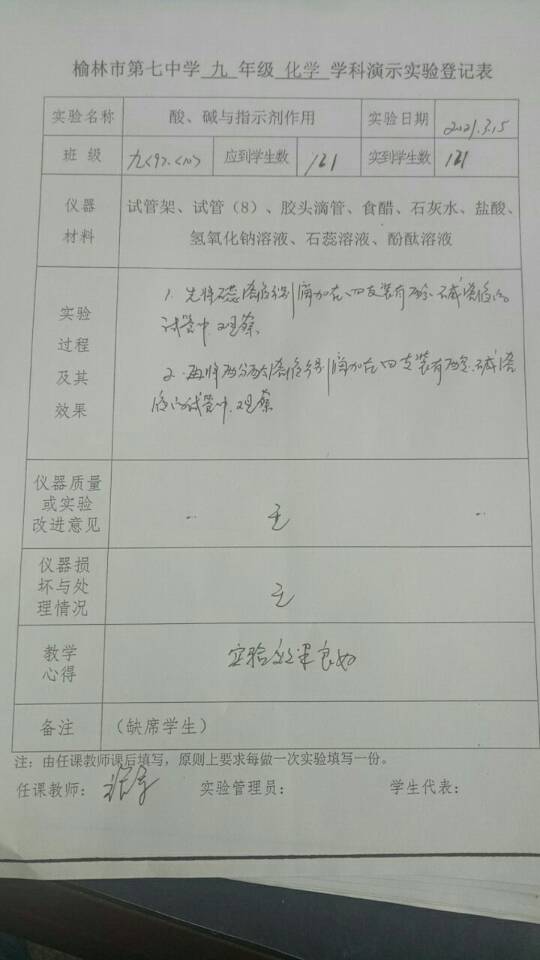 榆林市第七中学 九 年级 化学 学科演示实验登记表
实验名称 酸、碱与指示剂作用 实验日期 2021.3.15
班 级 九<9>.<10> 应到学生数 121 实到学生数 121
仪器
材料
试管架、试管（8）、胶头滴管、食醋、石灰水、盐酸、
氢氧化钠溶液、石蕊溶液、酚酞溶液
实验
过程
及其
效果
1. 先将石蕊溶液分别滴加在四支装有酸、碱溶液的
试管中观察
2. 再将酚酞溶液分别滴加在四支装有酸、碱溶
液的试管中.观察
仪器质量
或实验
改进意见
无
仪器损
坏与处
理情况
无
教学
心得
实验效果良好
备注 （缺席学生）
注：由任课教师课后填写，原则上要求每做一次实验填写一份。
任课教师： 实验管理员： 学生代表：